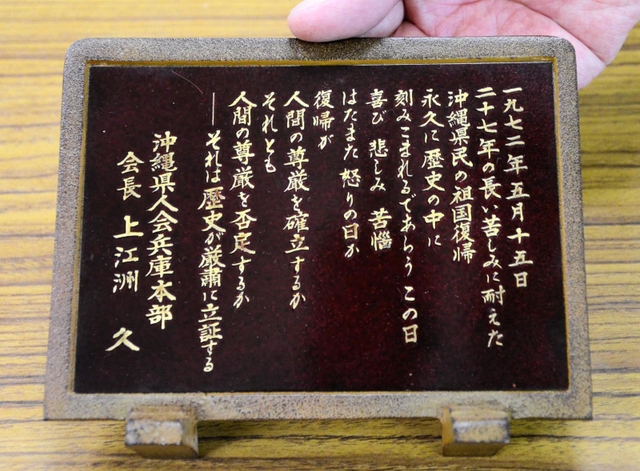 一九七二年五月十五日
二十七年の長い苦しみに耐えた
沖縄県民の祖国復帰
永久に歴史の中に
刻みこまれるであらう この日
喜び 悲しみ 苦惱
はたまた 怒りの日か
復帰が
人間の尊厳を確立するか
それとも
人間の尊厳を否定するか
──それは歴史が厳粛に立証する
沖縄県人会兵庫本部
会長 上江洲 久